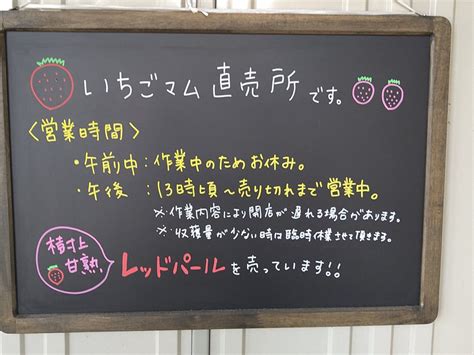 いちごマム直売所です。
〈営業時間〉
・午前中:作業中のためお休み。
・午後:13時頃〜売り切れまで営業中。
※作業内容により開店が遅れる場合があります。
※収穫量が少ない時は臨時休業させて頂きます。
樹上
甘熟
レッドパールを売っています!!